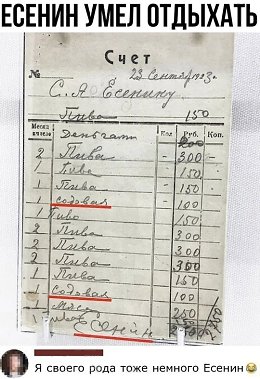 ЕСЕНИН УМЕЛ ОТДЫХАТЬ
Счет
№ 23 Сентября
С. А. Есенину
Пива 150
Кол Руб. Коп.
Деньгами
2 Пива - 300 -
1 Пива 150
1 Пива - 150
1 содовая - 100
1 Пиво 150
2 Пива 300
2 Пива 300
2 Пива 300
1 Пива 150
1 Содовая 100
1 250
Есенин
Я своего рода тоже немного Есенин😂